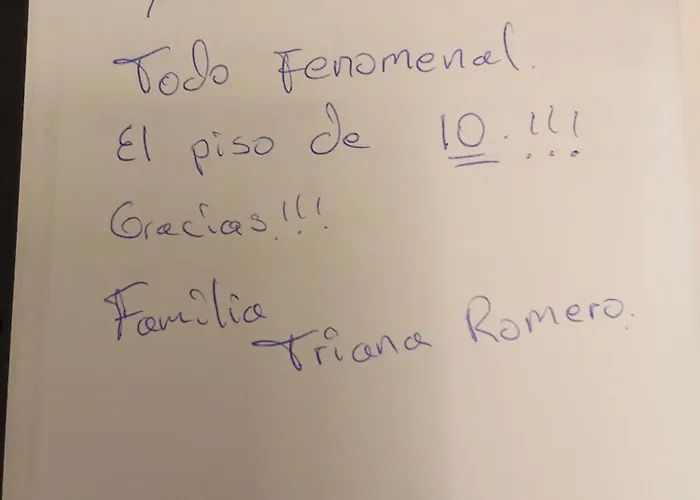 Todo Fenomenal.
El piso de 10.!!!
Gracias!!!
Familia
Triana Romero.